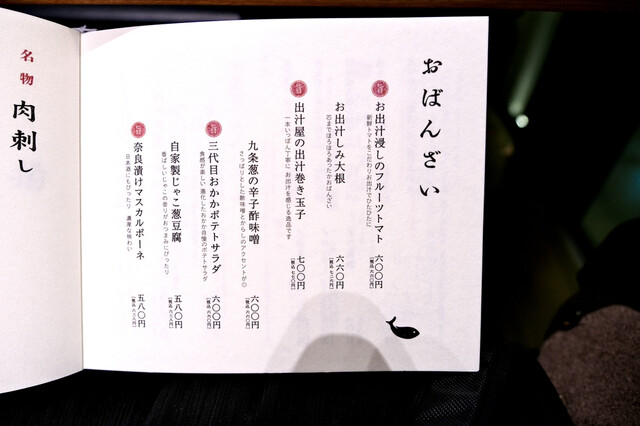 おばんざい
旨
お出汁浸しのフルーツトマト
新鮮トマトをこだわりお出汁でひたひたに
六〇〇円
(税込 六六〇円)
お出汁しみ大根
芯までほろほろあったかおばんざい
六六〇円
(税込 七二六円)
旨
出汁屋の出汁巻き玉子
一本いっぽん丁寧に お出汁を感じる逸品です
七〇〇円
(税込 七七〇円)
九条葱の辛子酢味噌
さっぱりとした酢味噌とからしのアクセントが◎
六〇〇円
(税込 六六〇円)
旨
三代目おかかポテトサラダ
食感が楽しい 進化したおかか自慢のポテトサラダ
六〇〇円
(税込 六六〇円)
自家製じゃこ葱豆腐
香ばしいじゃこの香りがおつまみにぴったり
五八〇円
(税込 六三八円)
旨
奈良漬けマスカルポーネ
日本酒にもぴったり 濃厚な味わい
五八〇円
(税込 六三八円)
名物
肉刺し